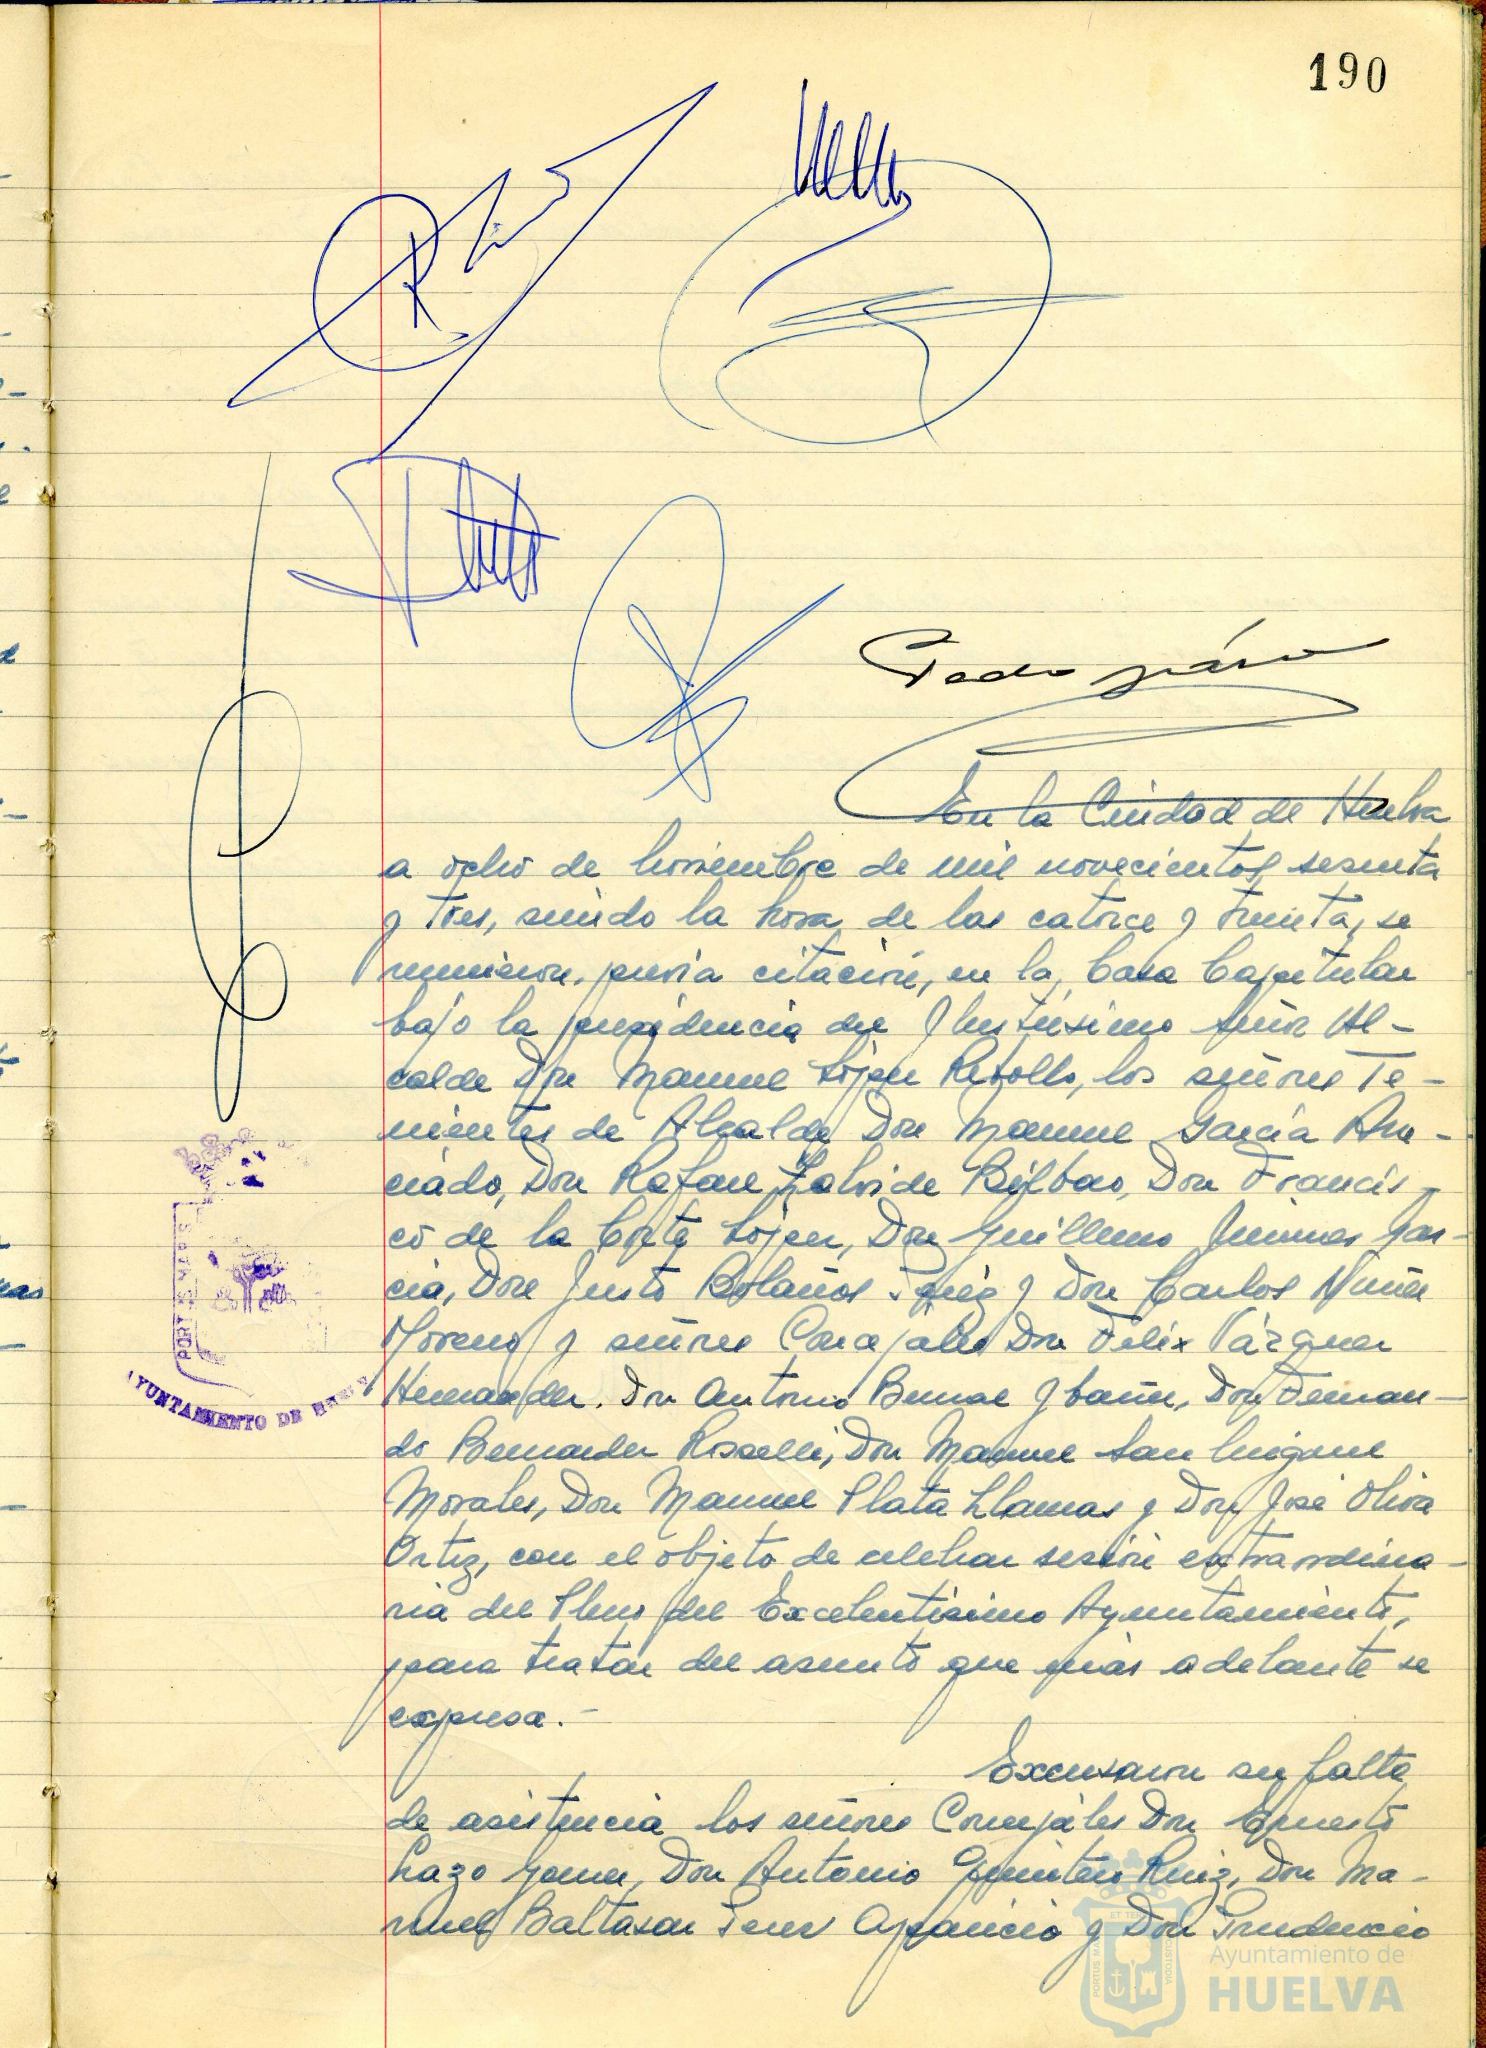 190
Pedro
En la Ciudad de Huelva
a ocho de noviembre de mil novecientos sesenta
y tres, siendo la hora de las catorce y treinta, se
reunieron, previa citación, en la Casa Capitular
bajo la presidencia del Ilustrísimo señor Al-
calde Don Manuel Lojen Rebollo, los señores Te-
nientes de Alcalde Don Manuel García An-
ciado, Don Rafael Zalvide Bilbao, Don Francis-
co de la Corte Lojen, Don Guillermo Jimenez Gar-
cia, Don Justo Bolaños y Don Carlos Nuñez
Moreno y señores Concejales Don Felix Vázquez
Hernandez, Don Antonio Bernal Ybañez, Don Fernan-
do Bernardez Roselli, Don Manuel San Miguel
Morales, Don Manuel Plata Llamas y Don José Oliva
Ortiz, con el objeto de celebrar sesión extraordina-
ria del Pleno del Excelentísimo Ayuntamiento,
para tratar del asunto que más adelante se
expresa.-
Excusaron su falta
de asistencia los señores Concejales Don Ernesto
Lazo Gamez, Don Antonio Quintero Ruiz, Don Ma-
nuel Baltasar Perez Aparicio y Don Prudencio
PORTUS MARIS
AYUNTAMIENTO DE HUELVA
Ayuntamiento de
HUELVA